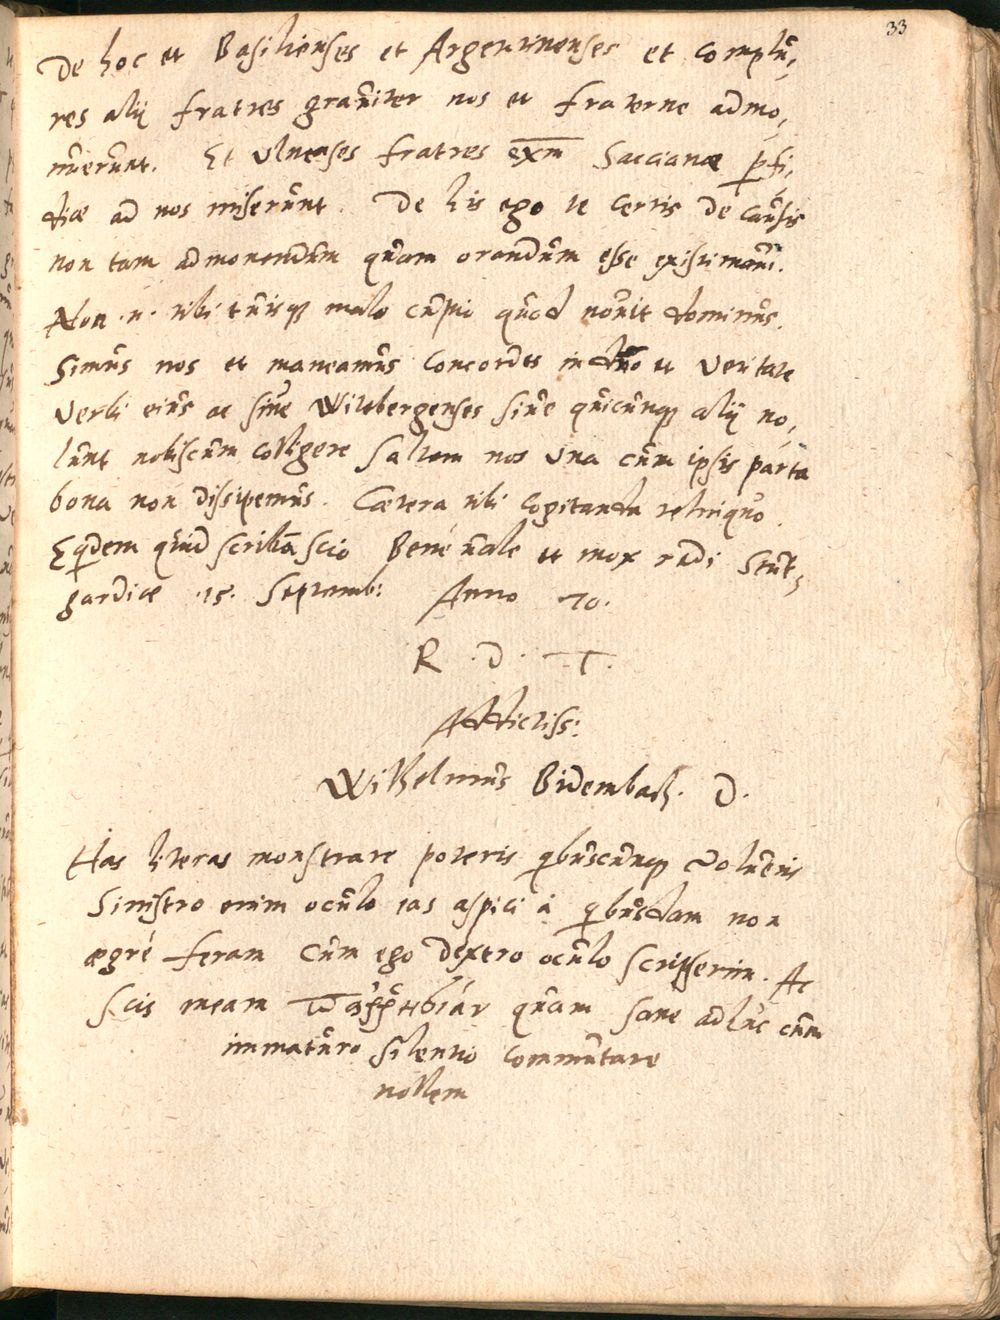 33
De hoc et Basilienses et Argentinenses et complu,
res alij fratres graviter nos et fraterne admo,
nuerunt. Et Ulmenses fratres exm Saccianæ pfi,
diæ ad nos miserunt. De his ego te certis de causis
non tam admonendum quam orandum esse existimavi.
Non .n. tibi tuisq male cupio quod novit dominus.
Simus nos et maneamus concordes in dno et veritate
verbi eius ac sive Witebergenses sive quicunq alij no,
lunt nobiscum colligere saltem nos una cum ipsis parta
bona non dissipemus. Cætera tibi cogitanda relinquo.
Eqdem quid scribã scio Bene vale et mox r. Stut,
gardiæ .15. Septemb: Anno 70.
R. D. T.
Addictiss:
Wilhelmus Bidembach. D.
Has literas monstrare poteris qbuscunq volueris
Sinistro enim oculo eas aspici à qbusdam non
ægré feram cum ego dextro oculo scripserim. Ac
scis meam παῤῥησίαν quam sane adhuc cum
immaturo silentio commutare
nollem